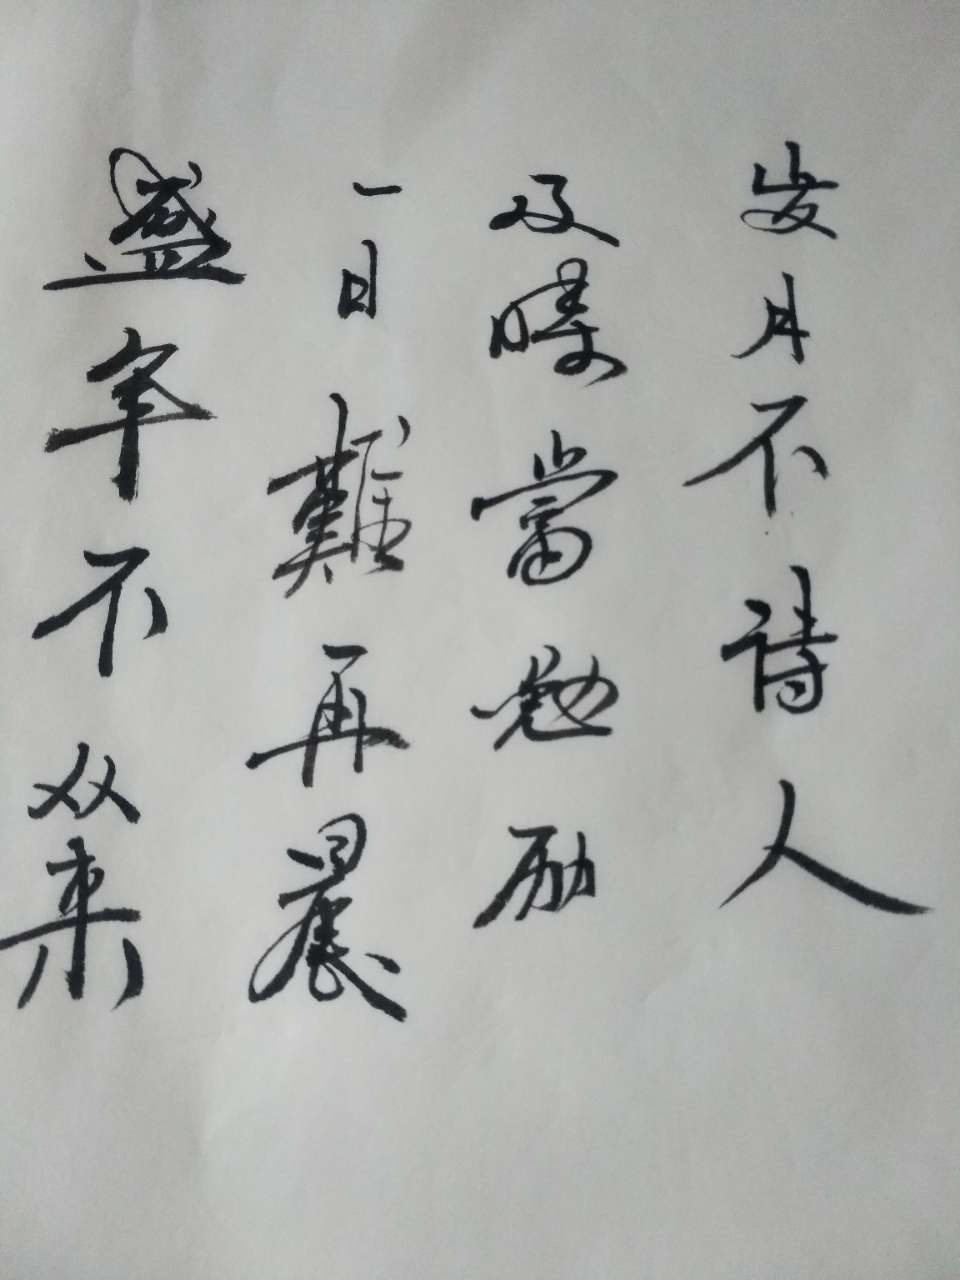 盛年不双来
一日難再晨
及時當勉励
岁月不待人